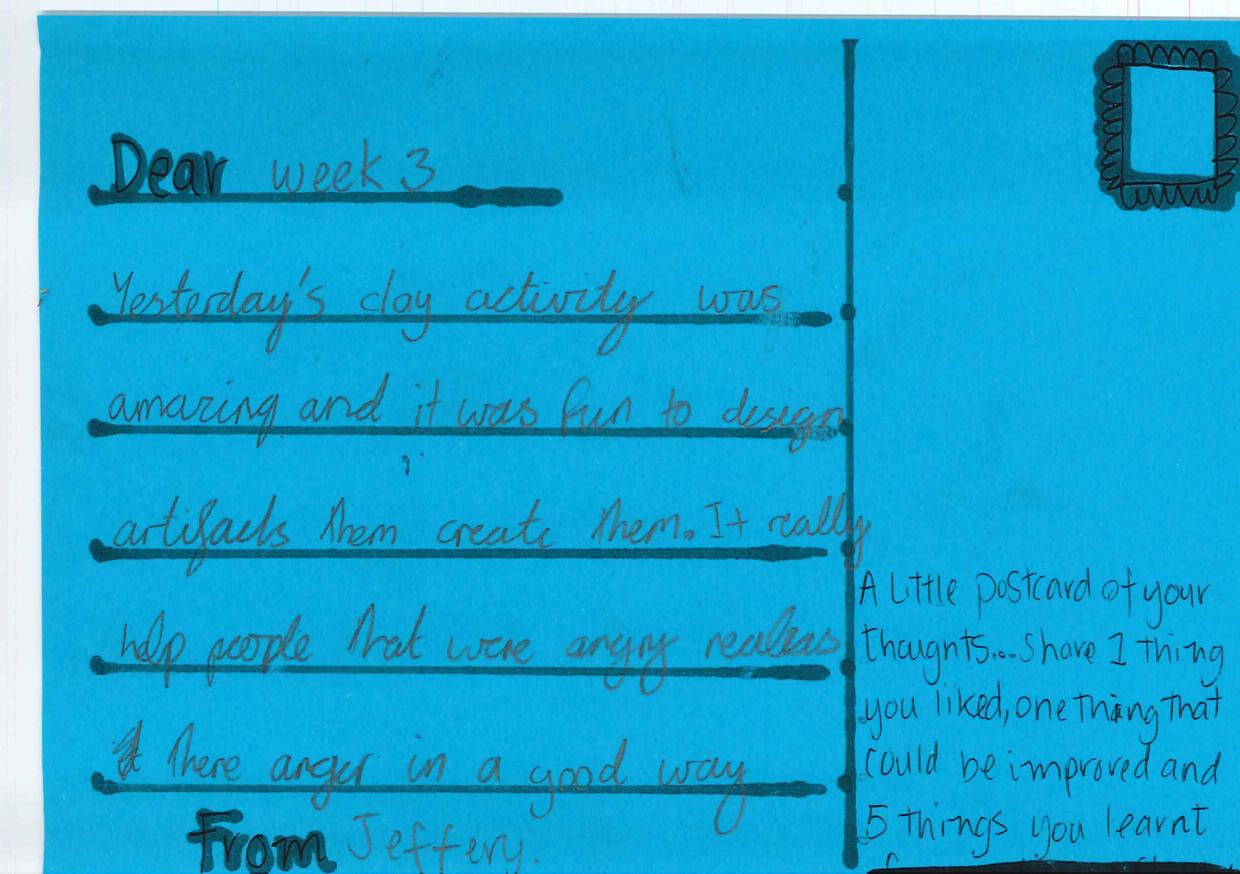 Dear week 3
Yesterday's clay activity was
amazing and it was fun to design
artifacts them create them. It really
help people that were angry realeas
there anger in a good way
From Jeffery.
A Little postcard of your
thoughts...Share 1 thing
you liked, one thing that
could be improved and
5 things you learnt